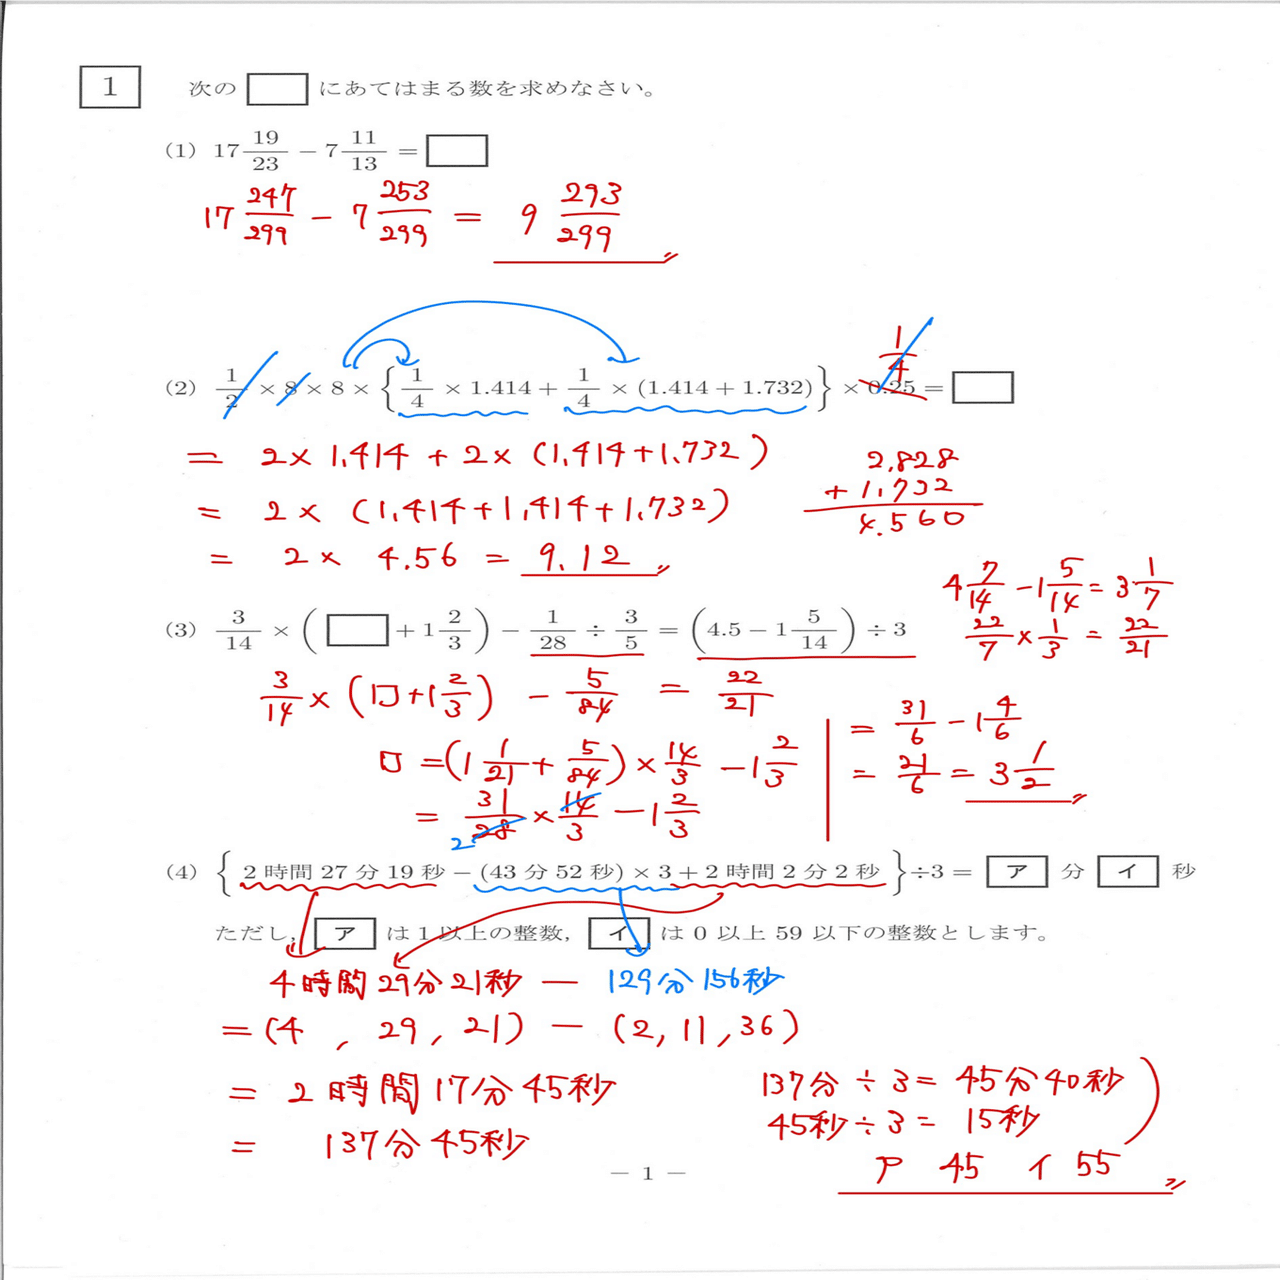 1 次の □ にあてはまる数を求めなさい。
(1) 17 19/23 − 7 11/13 = □
17 247/299 − 7 253/299 = 9 293/299
(2) 1/2 × 8 × 8 × { 1/4 × 1.414 + 1/4 × (1.414 + 1.732) } × 0.25 = □
1/4
= 2× 1.414 + 2× (1.414+1.732)
= 2× (1.414+1.414+1.732)
= 2× 4.56 = 9.12
2.828
+ 1.732
4.560
(3) 3/14 × ( □ + 1 2/3 ) − 1/28 ÷ 3/5 = ( 4.5 − 1 5/14 ) ÷ 3
4 7/14 − 1 5/14 = 3 1/7
22/7 × 1/3 = 22/21
3/14 × (□+1 2/3) − 5/84 = 22/21
□ = (1 1/21 + 5/84) × 14/3 − 1 2/3
= 31/28 × 14/3 − 1 2/3
2
= 31/6 − 1 4/6
= 21/6 = 3 1/2
(4) { 2 時間 27 分 19 秒 − (43 分 52 秒) × 3 + 2 時間 2 分 2 秒 } ÷3 = ア 分 イ 秒
ただし, ア は 1 以上の整数, イ は 0 以上 59 以下の整数とします。
4時間29分21秒 − 129分156秒
= (4 , 29 , 21) − (2, 11, 36)
= 2時間17分45秒
= 137分45秒
137分 ÷ 3 = 45分40秒
45秒 ÷ 3 = 15秒
ア 45 イ 55
− 1 −